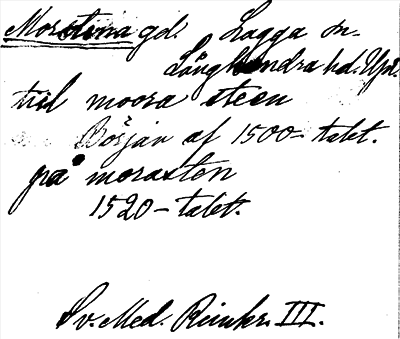 Morstena gd. Lagga sn.
Långhundra hd. Upl.
till moora steen
Början af 1500-talet.
på morasten
1520-talet.
Sv. Med. Rimkr. III.